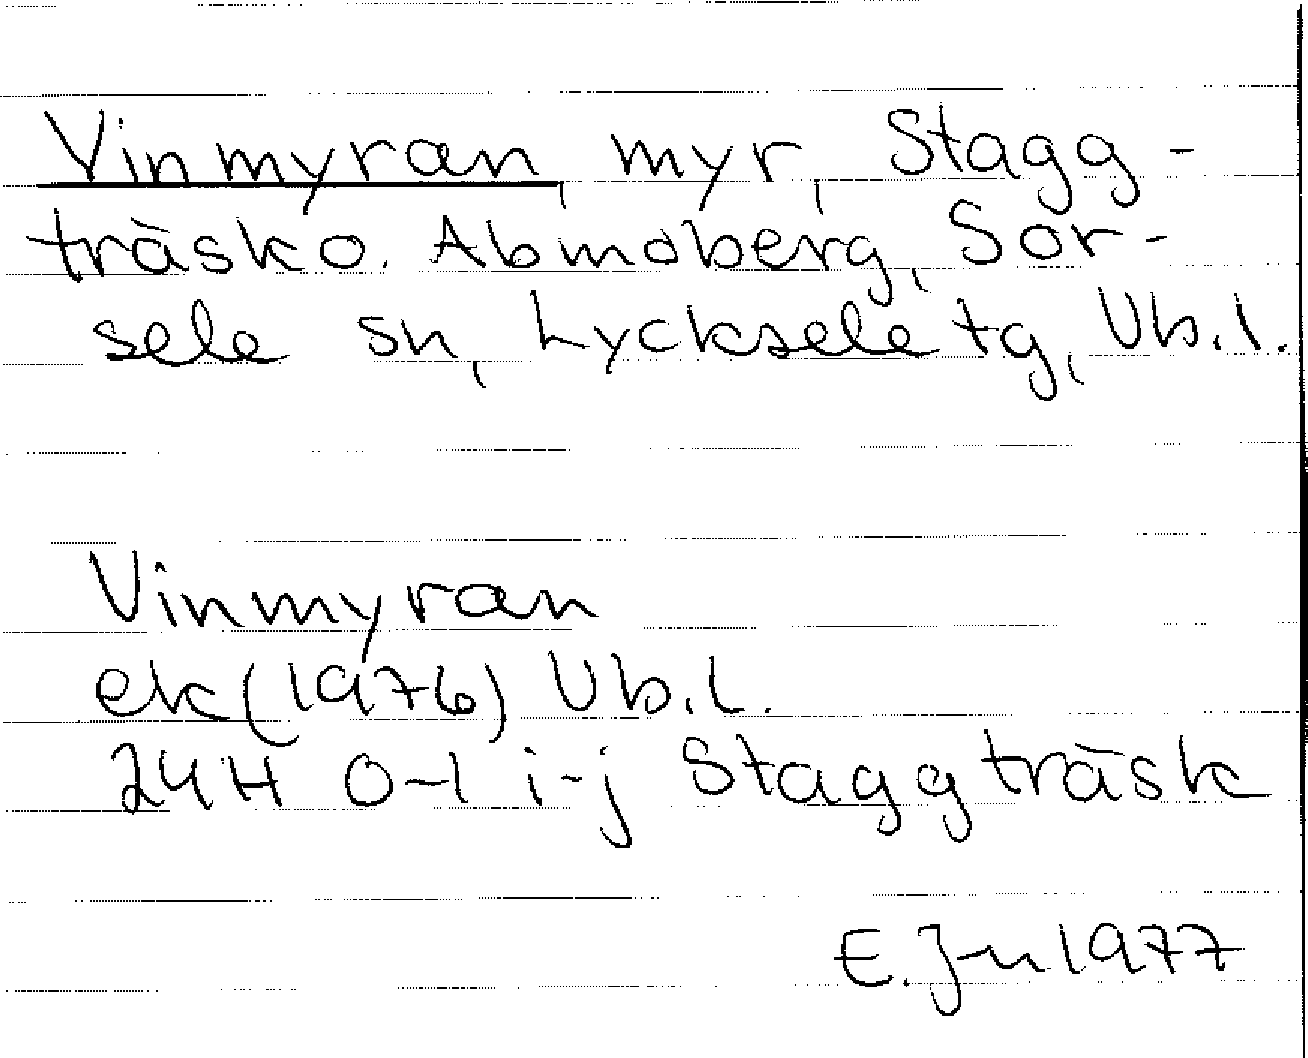 Vinmyran, myr, Stagg-
träsk o. Abmoberg, Sor-
sele sn, Lycksele tg, Vb.l.
Vinmyran
ek (1976) Vb.l.
24H 0-1 i-j Staggträsk
E.Jn 1977